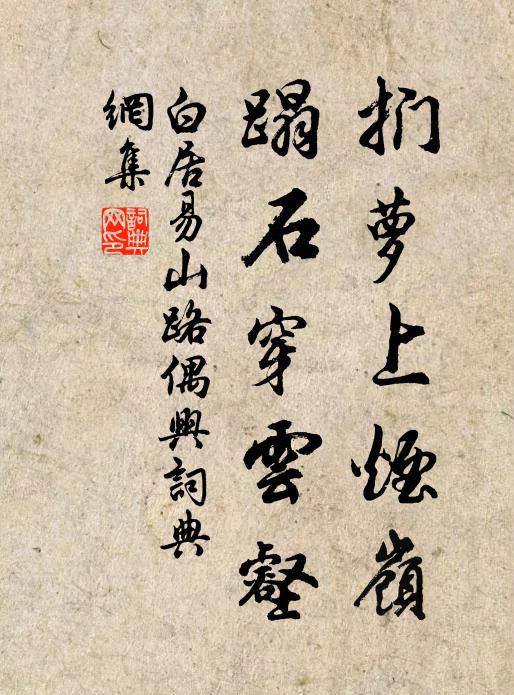 扪萝上煙嶺
蹋石穿雲壑
白居易山路偶興詞典
網集
詞典
网印